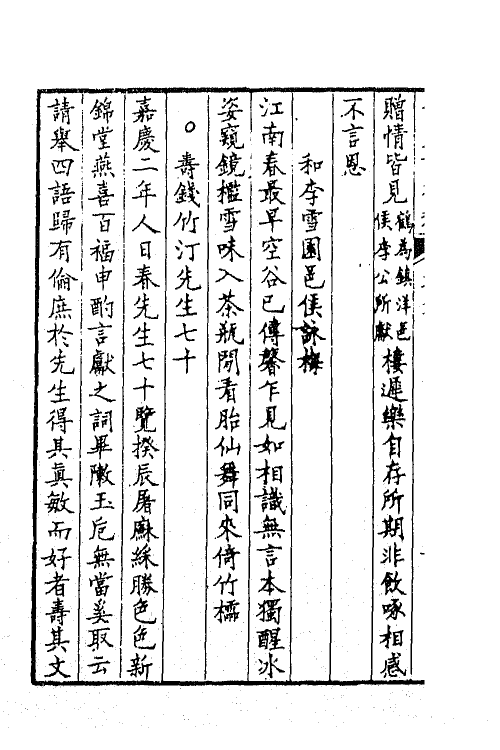 贈情皆見鶴為鎮洋邑侯李公所獻棲遲樂自存所期非飲啄相感
不言恩
和李雪園邑侯詠梅
江南春最早空谷已傳馨乍見如相識無言本獨醒冰
姿窺鏡檻雪味入茶瓶閒看胎仙舞同來倚竹櫺
○壽錢竹汀先生七十
嘉慶二年人日春先生七十覽揆辰屠蘇綵勝色色新
錦堂燕喜百福申酌言獻之詞畢敶玉卮無當奚取云
請舉四語歸有倫庶於先生得其真敏而好者壽其文